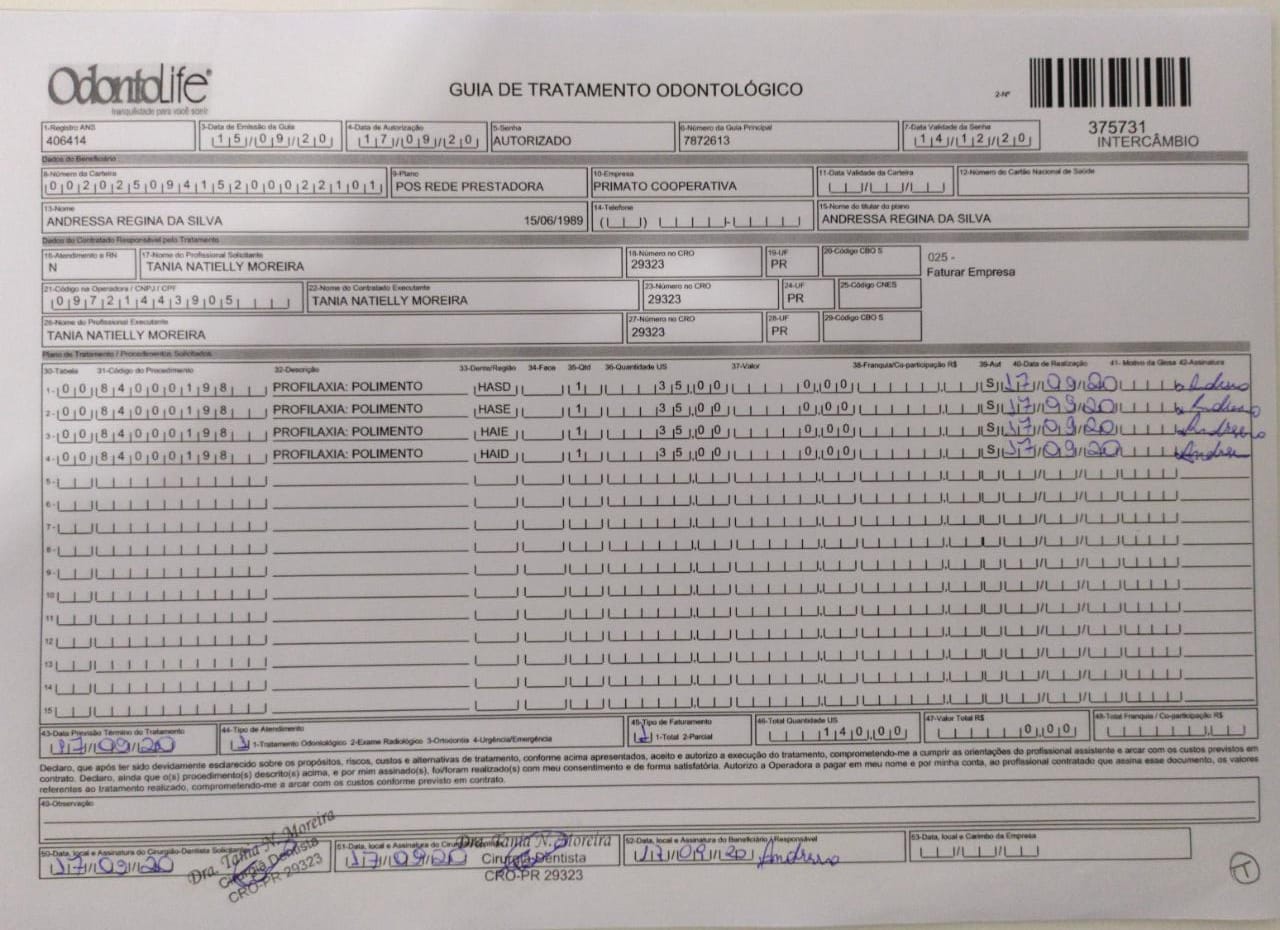 OdontoLife®
tranquilidade para você sorrir
GUIA DE TRATAMENTO ODONTOLÓGICO
2-Nº
375731
INTERCÂMBIO
1-Registro ANS 3-Data de Emissão da Guia 4-Data de Autorização 5-Senha 6-Número da Guia Principal 7-Data Validade da Senha
406414 15/09/20 17/09/20 AUTORIZADO 7872613 14/12/20
Dados do Beneficiário
8-Número da Carteira 9-Plano 10-Empresa 11-Data Validade da Carteira 12-Número do Cartão Nacional de Saúde
00202509415200022101 POS REDE PRESTADORA PRIMATO COOPERATIVA
13-Nome 14-Telefone 15-Nome do titular do plano
ANDRESSA REGINA DA SILVA 15/06/1989 ANDRESSA REGINA DA SILVA
Dados do Contratado Responsável pelo Tratamento
16-Atendimento a RN 17-Nome do Profissional Solicitante 18-Número no CRO 19-UF 20-Código CBO S
N TANIA NATIELLY MOREIRA 29323 PR
025 -
Faturar Empresa
21-Código na Operadora / CNPJ / CPF 22-Nome do Contratado Executante 23-Número no CRO 24-UF 25-Código CNES
09721443905 TANIA NATIELLY MOREIRA 29323 PR
26-Nome do Profissional Executante 27-Número no CRO 28-UF 29-Código CBO S
TANIA NATIELLY MOREIRA 29323 PR
Plano de Tratamento / Procedimentos Solicitados
30-Tabela 31-Código do Procedimento 32-Descrição 33-Dente/Região 34-Face 35-Qtd 36-Quantidade US 37-Valor 38-Franquia/Co-participação R$ 39-Aut 40-Data de Realização 41- Motivo da Glosa 42-Assinatura
1- 00 84000198 PROFILAXIA: POLIMENTO HASD 1 35,00 0,00 S 17/09/20 Andressa
2- 00 84000198 PROFILAXIA: POLIMENTO HASE 1 35,00 0,00 S 17/09/20 Andressa
3- 00 84000198 PROFILAXIA: POLIMENTO HAIE 1 35,00 0,00 S 17/09/20 Andressa
4- 00 84000198 PROFILAXIA: POLIMENTO HAID 1 35,00 0,00 S 17/09/20 Andressa
5-
6-
7-
8-
9-
10
11
12
13
14
15
43-Data Previsão Término do Tratamento 44-Tipo de Atendimento 45-Tipo de Faturamento 46-Total Quantidade US 47-Valor Total R$ 48-Total Franquia / Co-participação R$
17/09/20 1 1-Tratamento Odontológico 2-Exame Radiológico 3-Ortodontia 4-Urgência/Emergência 1 1-Total 2-Parcial 140,00 0,00
Declaro, que após ter sido devidamente esclarecido sobre os propósitos, riscos, custos e alternativas de tratamento, conforme acima apresentados, aceito e autorizo a execução do tratamento, comprometendo-me a cumprir as orientações do profissional assistente e arcar com os custos previstos em
contrato. Declaro, ainda que o(s) procedimento(s) descrito(s) acima, e por mim assinado(s), fo/foram realizado(s) com meu consentimento e de forma satisfatória. Autorizo a Operadora a pagar em meu nome e por minha conta, ao profissional contratado que assina esse documento, os valores
referentes ao tratamento realizado, comprometendo-me a arcar com os custos conforme previsto em contrato.
49-Observação
50-Data, local e Assinatura do Cirurgião-Dentista Solicitante 51-Data, local e Assinatura do Cirurgião-Dentista 52-Data, local e Assinatura do Beneficiário / Responsável 53-Data, local e Carimbo da Empresa
17/09/20 17/09/20 17/09/20 Andressa
Dra. Tania N. Moreira
Cirurgiã Dentista
CRO-PR 29323
Dra. Tania N. Moreira
Cirurgiã Dentista
CRO-PR 29323
T